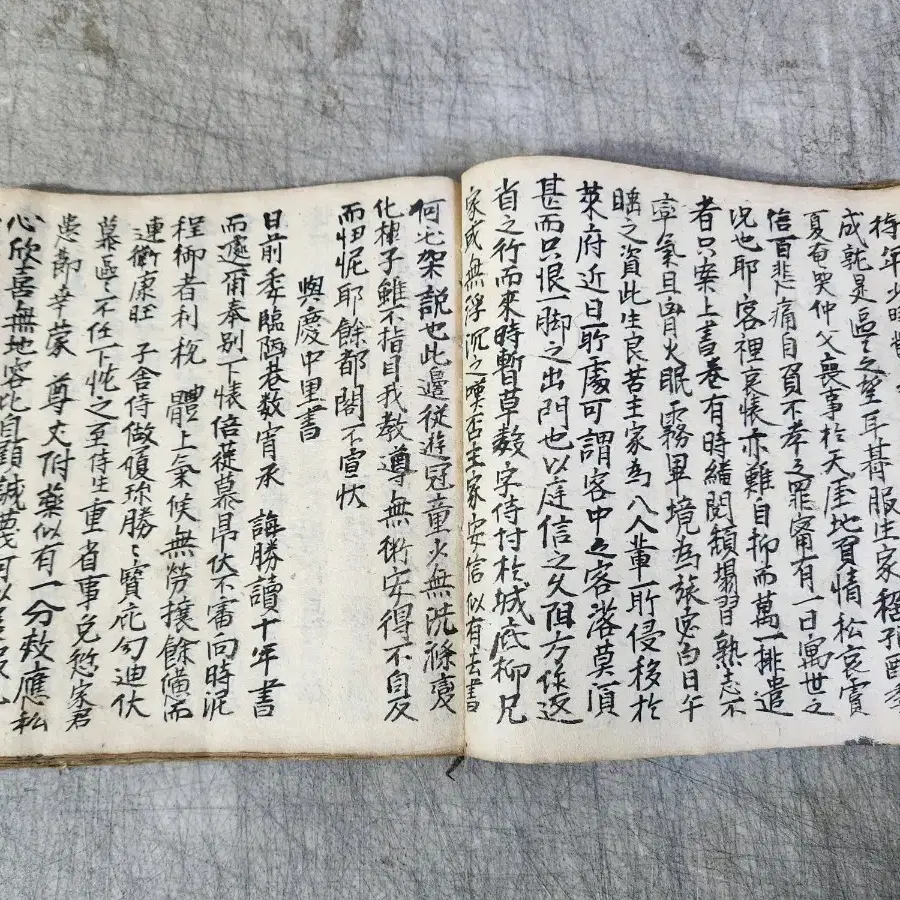 待年少時
成就是區區之望耳朞服生家稚孫
夏奄哭仲父喪事於天厓地負情私哀實
信百悲痛自負不孝之罪寗有一日寓世之
況也耶客裡哀懷亦難自抑而萬一排遣
者只案上書卷有時繙閱頹塌習熟志不
且火眠霧畢境為旅白日午
之資此生良苦主家為八人輩所侵移於
萊府近日所處可謂客中之客落莫頂
甚而只恨一脚之出門也以庭信之久阻方作返
省之行而來時暫草數字侍付於城底柳兄
家或無浮沉之嘆否主家安信似有去書
何必架說也此邊從遊冠童少無洗滌變
化樣子雖不指目我教導無術安得不自反
而忸怩耶餘都閣不宣狀
與慶中里書
日前委臨陋巷數宵承 誨勝讀十年書
而遽爾奉別下懷倍從慕昻伏不審向時泥
程御者利稅 體上氣候無勞攘餘備而
連衛康旺 子舍侍做傾珎勝勝寶庇勻迪伏
慕區區不任下忱之至侍生重省事免愁家君
患節幸蒙 尊丈附藥似有一分效應私
心欣喜無地容比自顧誠薄何以